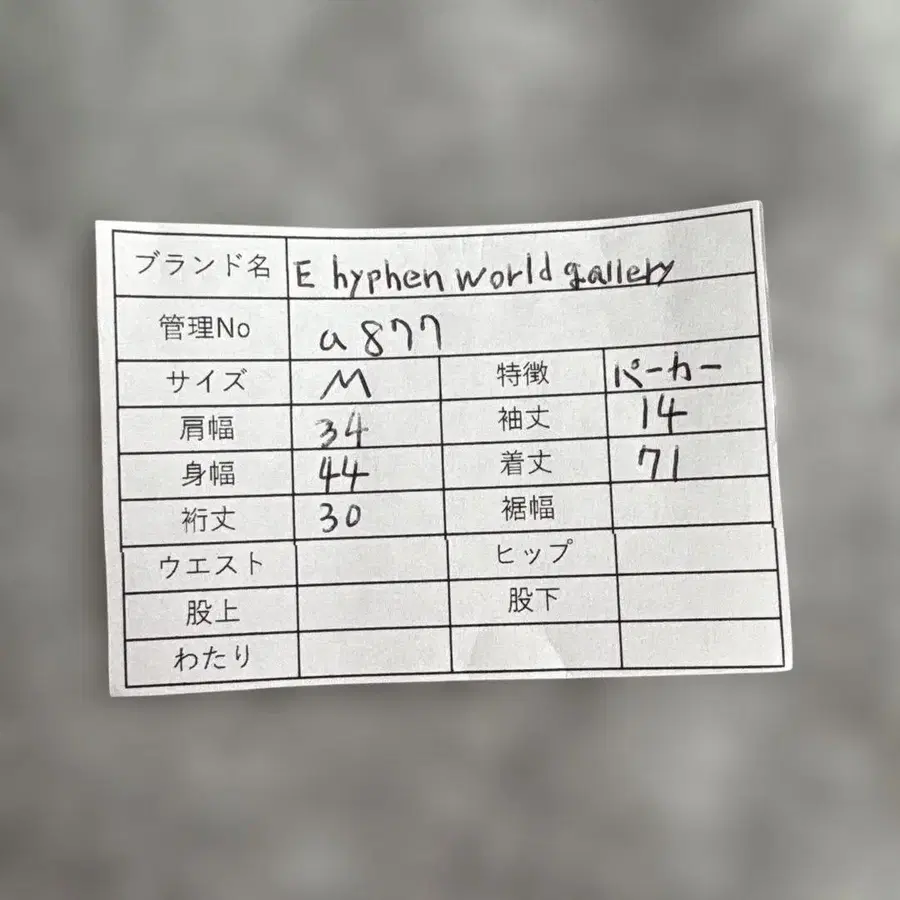 ブランド名 E hyphen world gallery
管理No a877
サイズ M 特徴 パーカー
肩幅 34 袖丈 14
身幅 44 着丈 71
裄丈 30 裾幅
ウエスト ヒップ
股上 股下
わたり